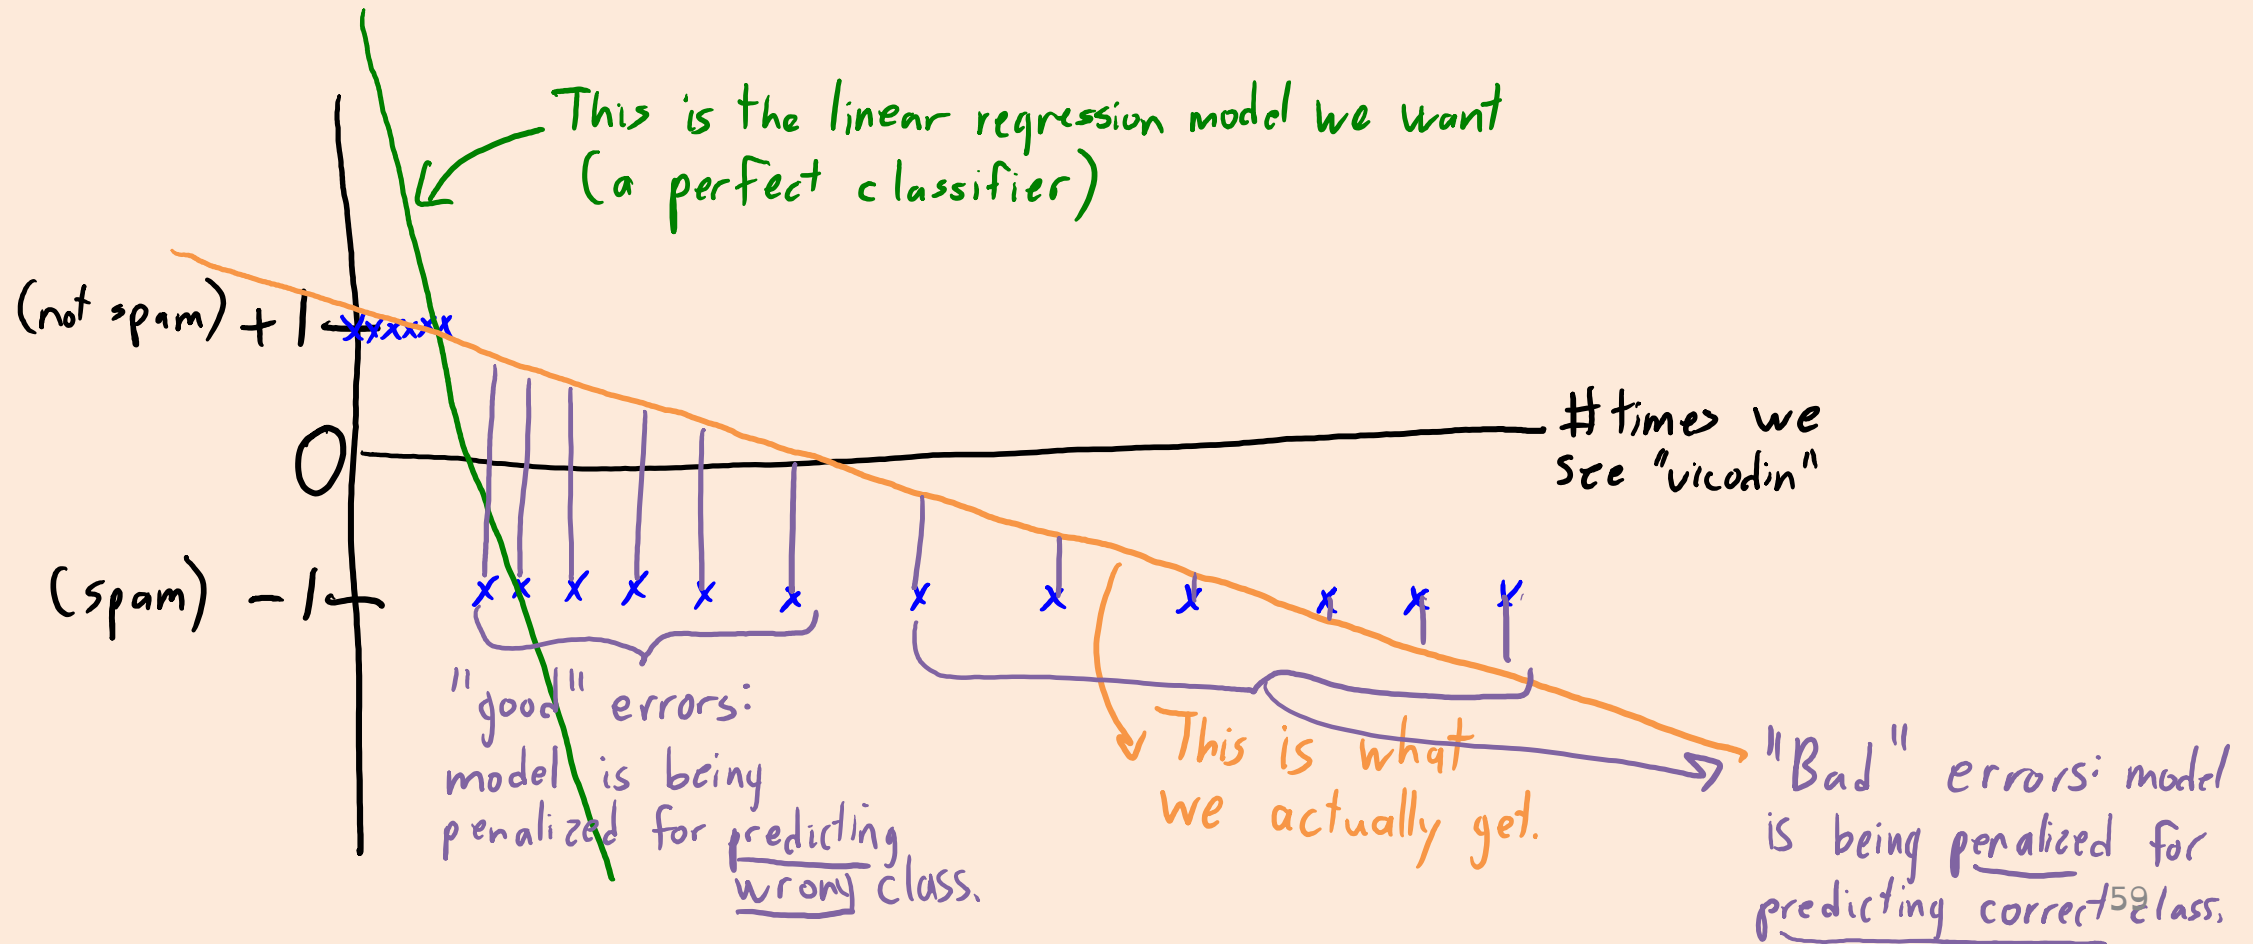 This is the linear regression model we want
(a perfect classifier)
(not spam) +1
0
# times we
see "vicodin"
(spam) -1
"good" errors:
model is being
penalized for predicting
wrong class.
This is what
we actually get.
"Bad" errors: model
is being penalized for
predicting correct class.
59